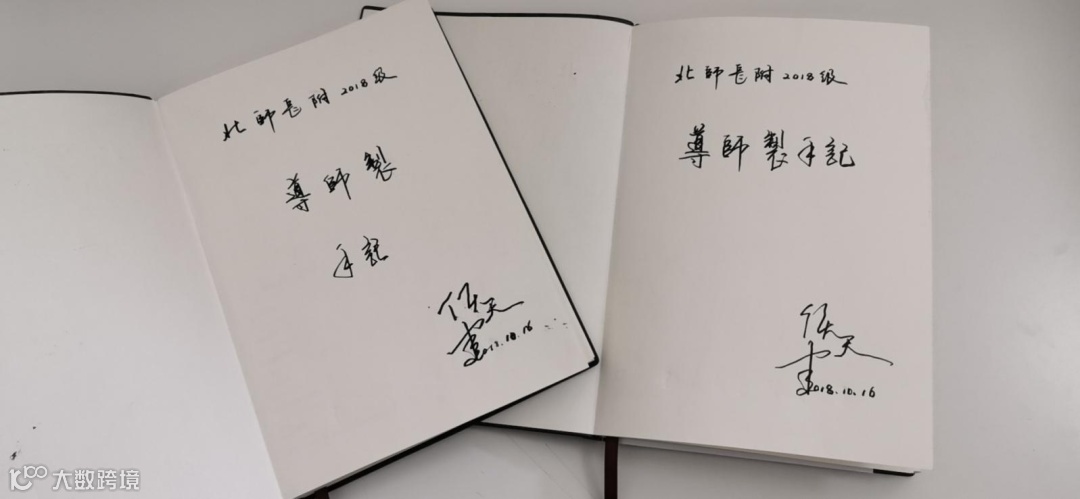 北師長附2018级
導師製
手記
任天
2018.10.16
北師長附2018级
導師製手記
任天
2018.10.16
大数跨境